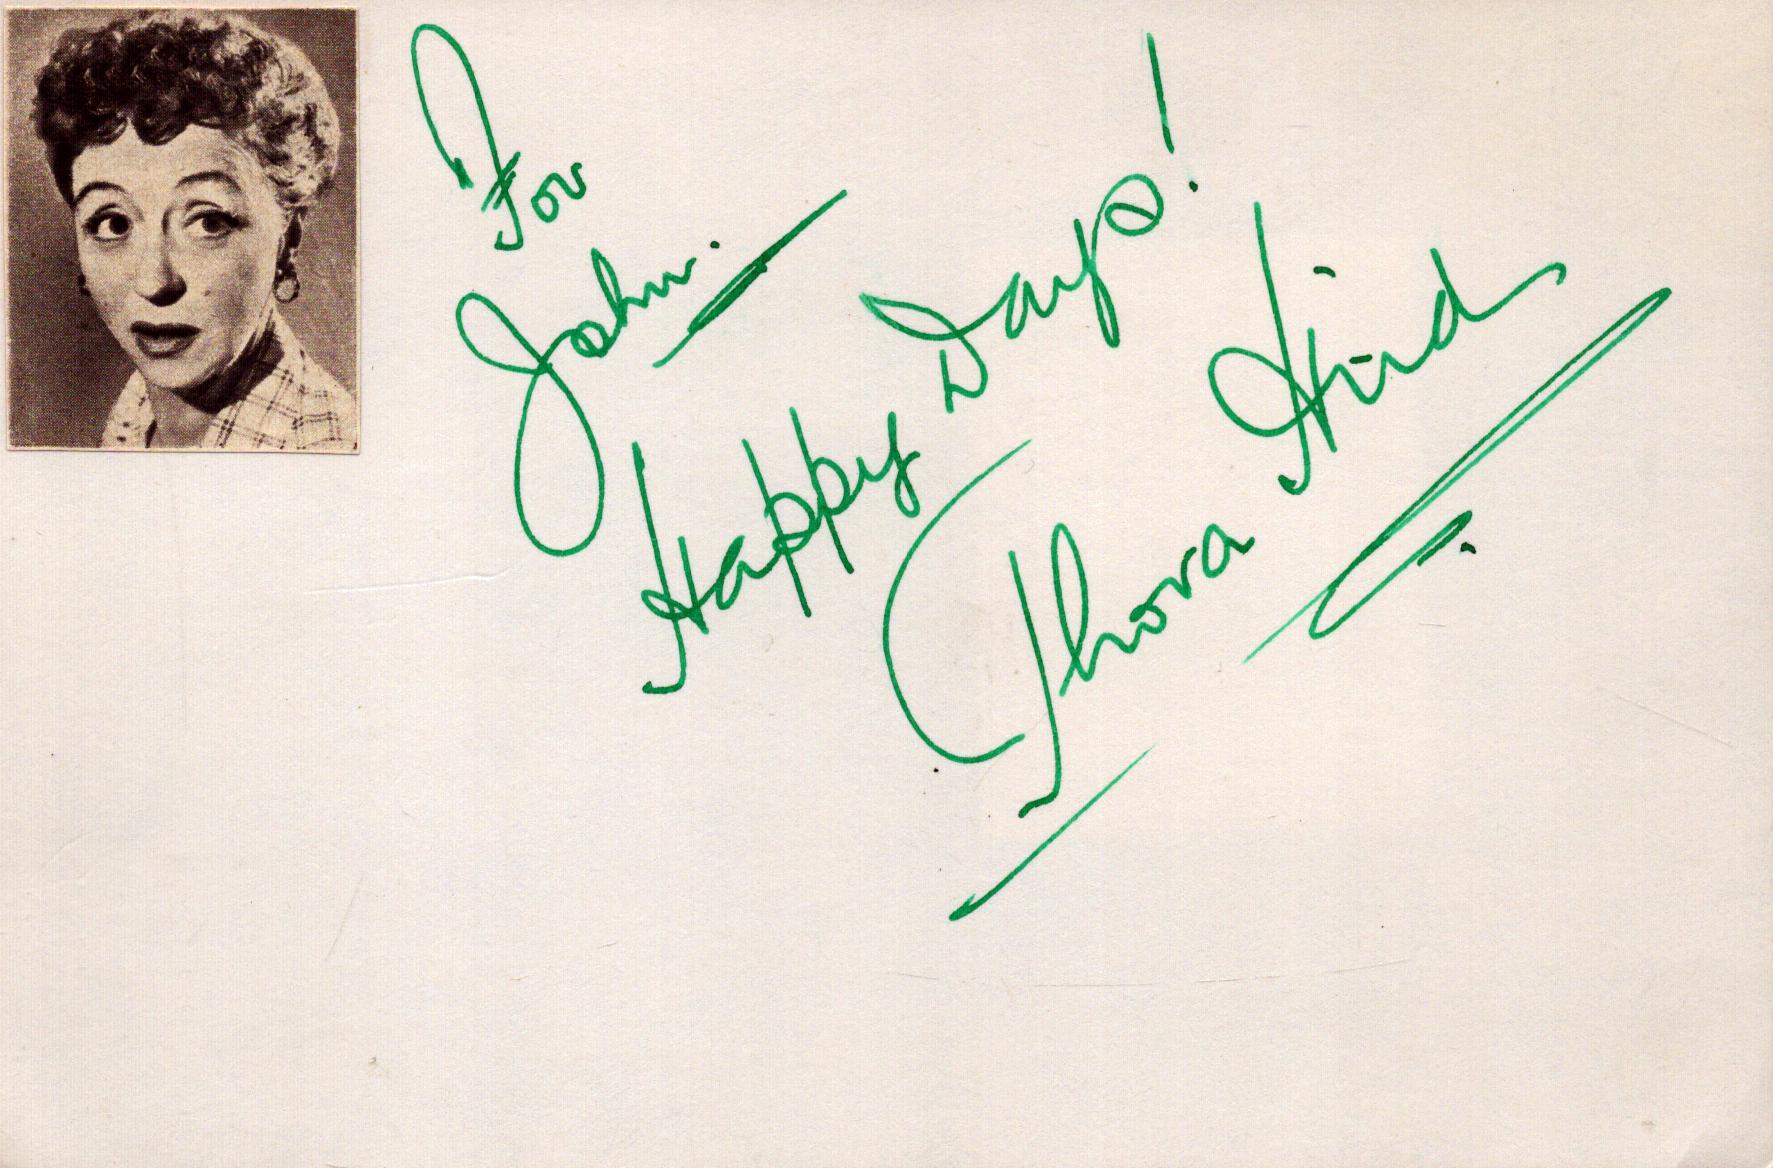 For
John.
Happy Days!
Thora Hird.